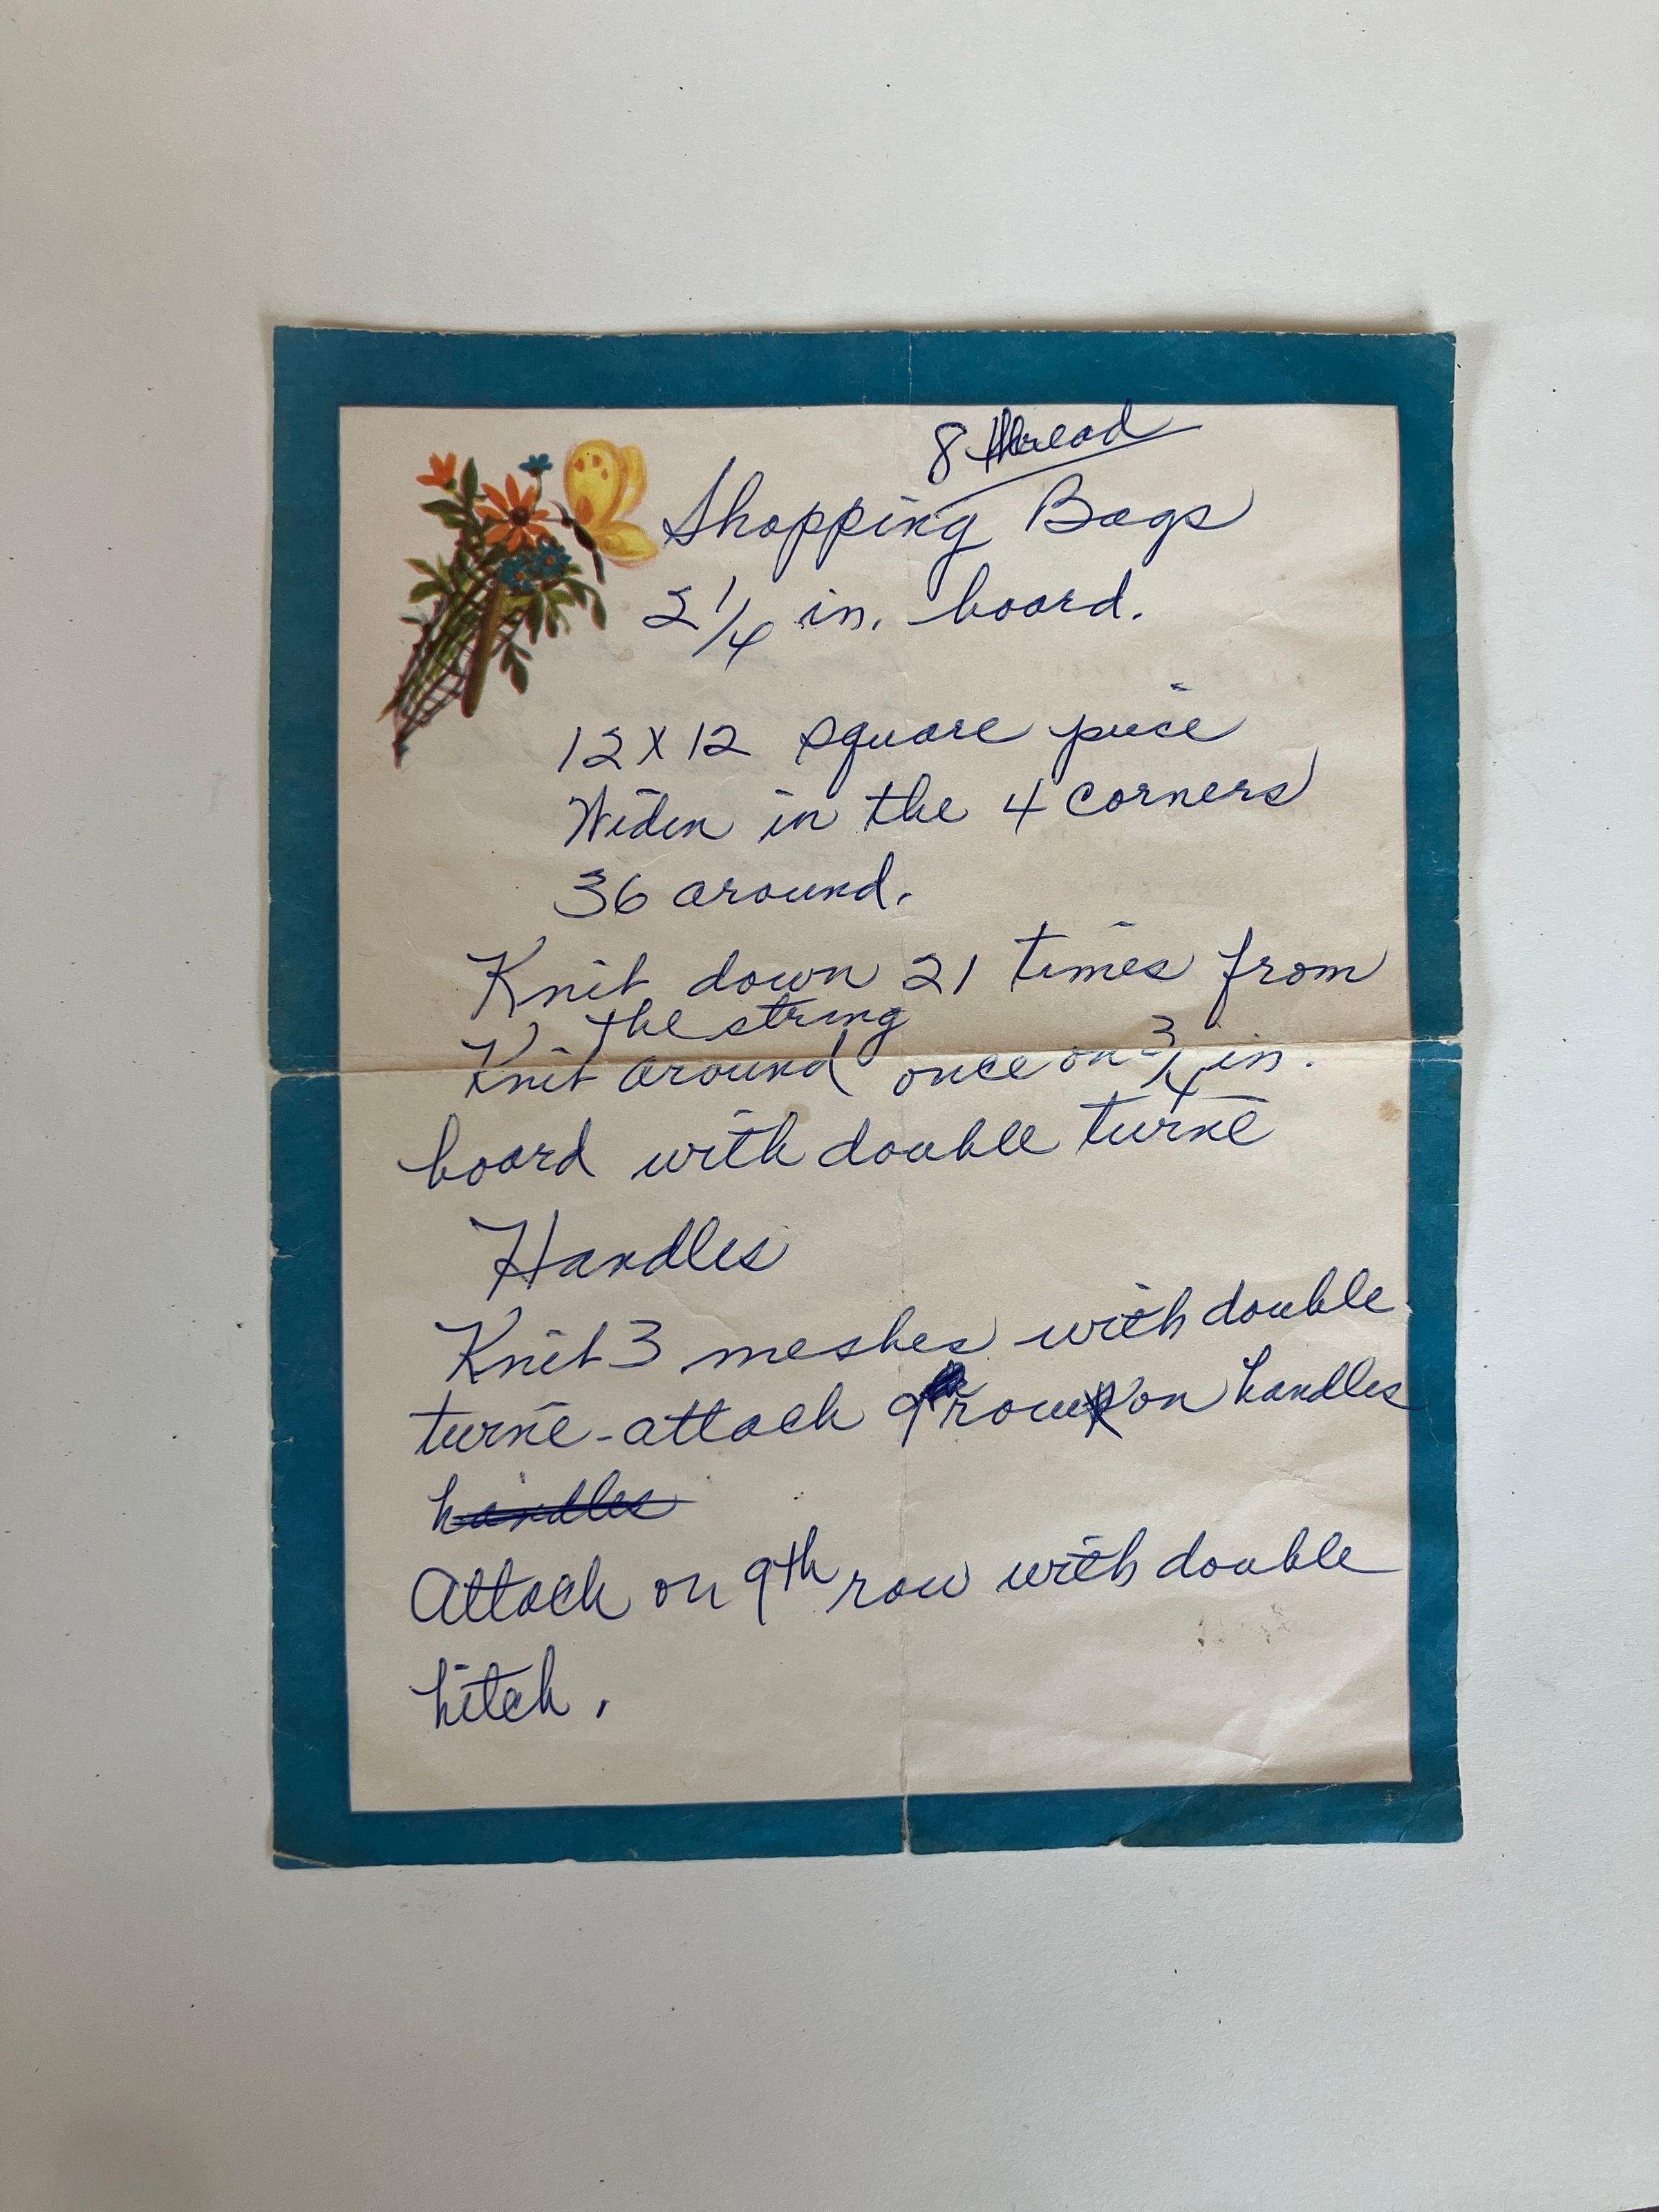 8 thread
Shopping Bags
2 1/4 in. board.
12 X 12 square piece
Widen in the 4 corners
36 around.
Knit down 21 times from
the string
Knit around once on 3/4 in.
board with double turne
Handles
Knit 3 meshes with double
turne - attach 9 row on handles
handles
Attach on 9th row with double
hitch.